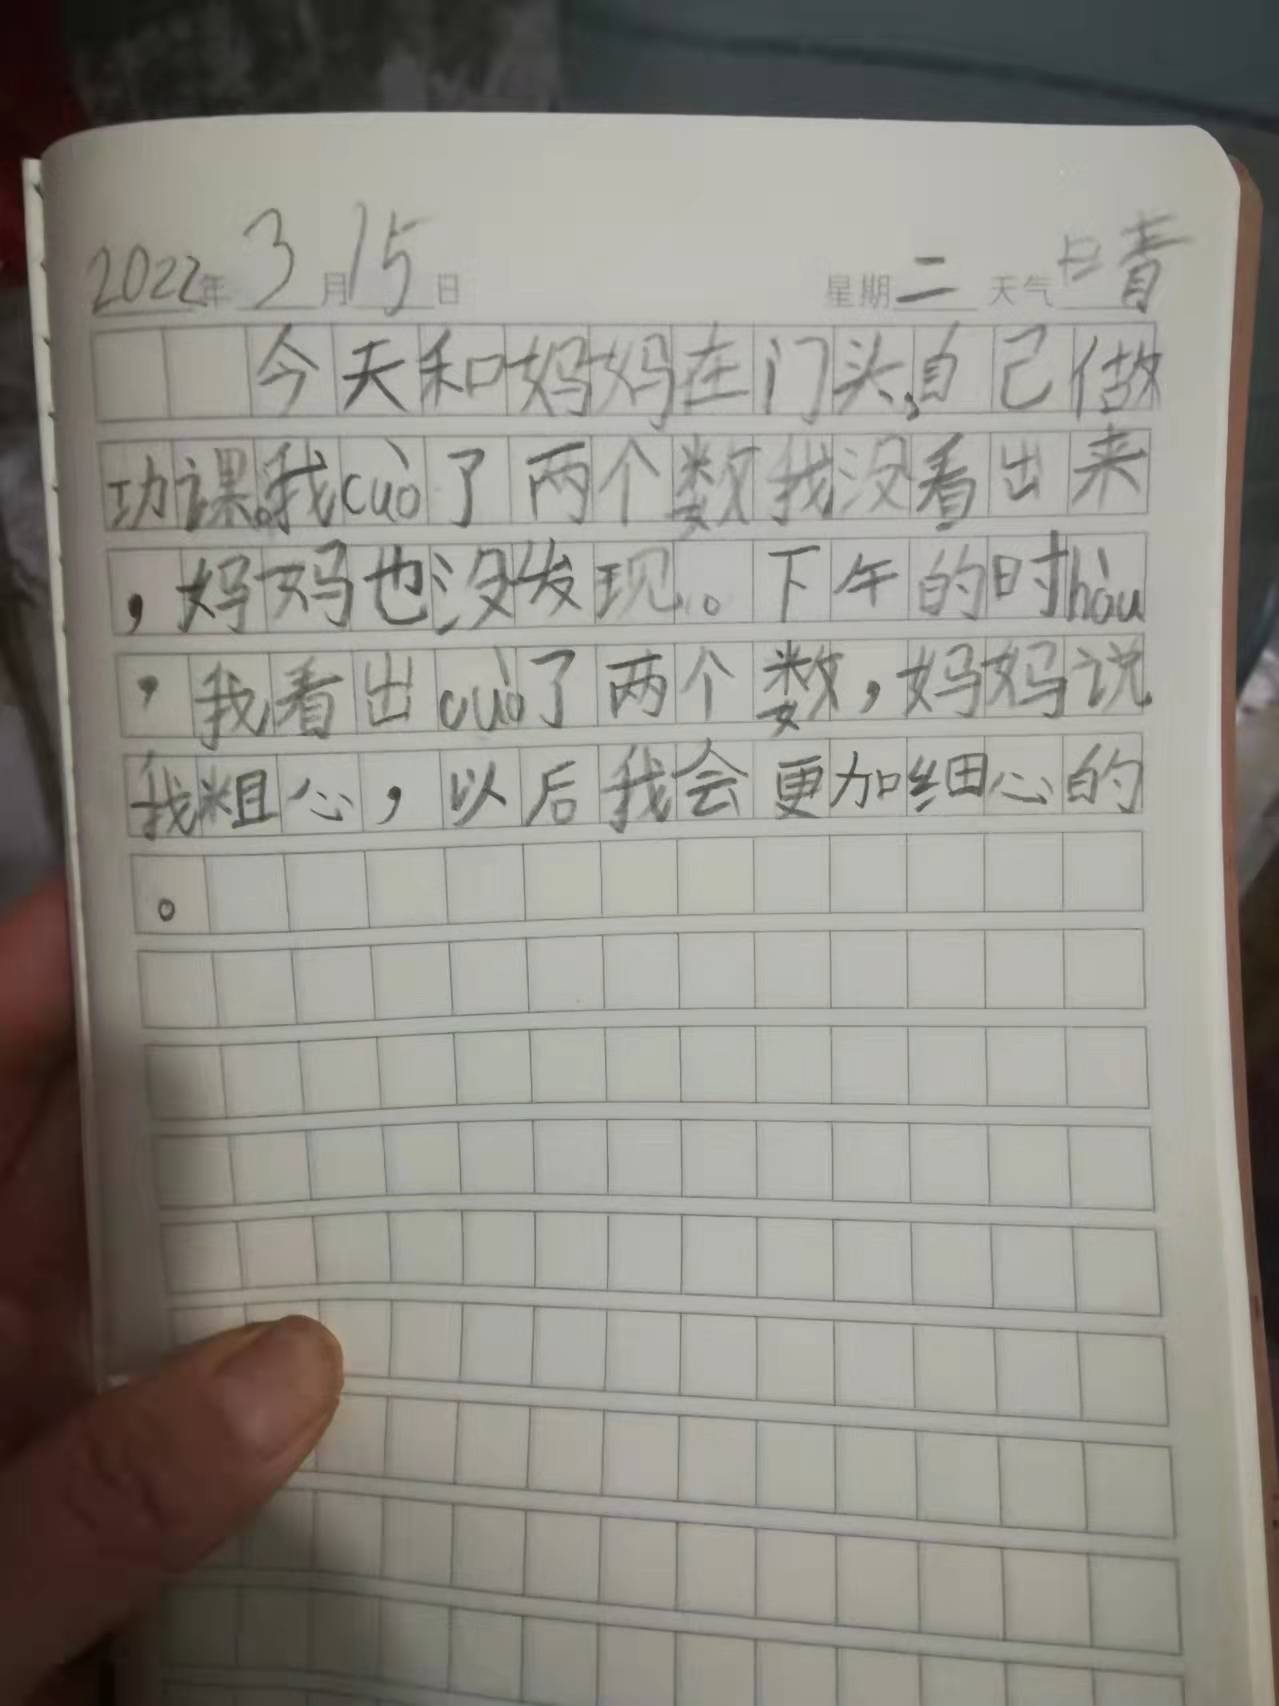 2022年3月15日 星期二 天气晴
今天和妈妈在门头,自己做
功课。我cuò了两个数我没看出来
，妈妈也没发现。下午的时hòu
，我看出cuò了两个数，妈妈说
我粗心，以后我会更加细心的
。